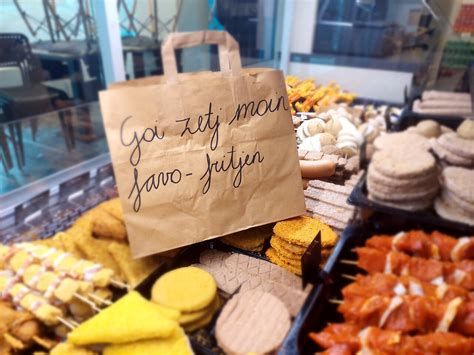 Goi zetj moin
favo-fritjen